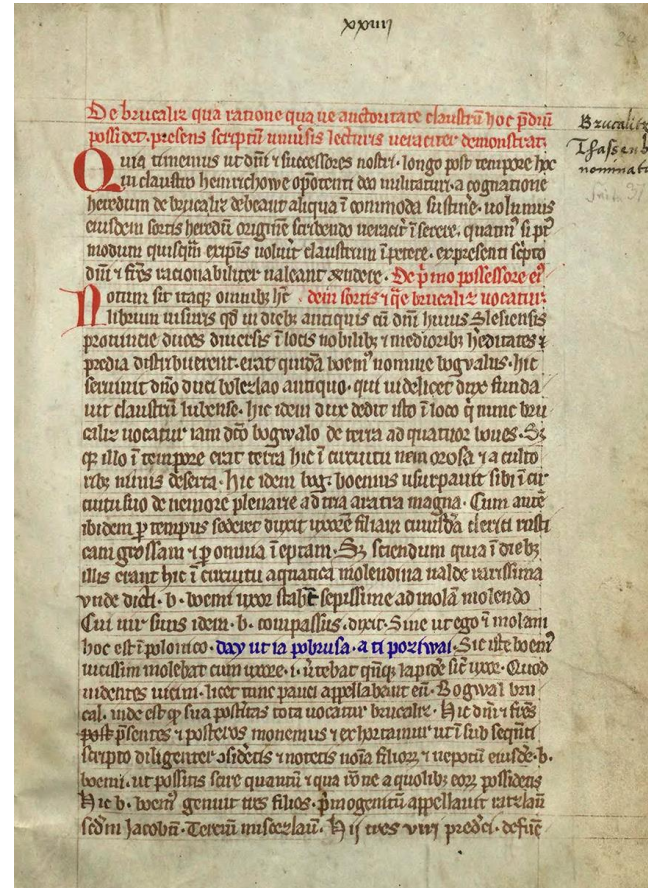 xxiiii
24
De brucaliz qua ratione qua ve auctoritate claustrū hoc p̄diū
possidet. presens scriptū univ̄sis lecturis veraciter demonstrat.
Brucalitz
Quia timemus ut dn̄i ⁊ successores nostri. longo post tempore hoc
in claustro heinrichowe op̄otenti deo militaturi. a cognatione
nominat
heredum de brucaliz debeant aliqua ī commoda sustin̄e. volumus
eiusdem sortis heredū originē scribendo veracit̄ ī serere. quatinꝰ si p̄t
modum quisq̄m ex ip̄is voluīt claustrum ī petere. ex presenti sc̄pto
dn̄i ⁊ fr̄es racionabiliter valeant rn̄dere. De p̄mo possessore eiꝰ
Notum sit itaq; omnib; hc̄ dem sortis ⁊ q̄re brucaliz vocatur.
librum visuris qd̄ in dieb; antiquis cū dn̄i huius Slesiensis
provincie duces diversis ī locis nobilib; ⁊ mediorib; h̄editates ⁊
predia distribuerent. erat quidā boemꝰ nomine bogvalus. hic
servivit dn̄o duci bolezlao antiquo. qui videlicet dux funda
vit claustrū lubense. hic idem dux dedit isto ī loco q̄ nunc bru
caliz vocatur iam dc̄o bogwalo de terra ad quatuor boves. S;
q̄; illo ī tempore erat terra hic ī circuitu nemorosa ⁊ a culto
rib; nimis deserta. hic idem bog. boemus usurpavit sibi ī cir
cuitu suo de nemore plenarie ad tria aratra magna. Cum autē
ibidem p̄ tempus sederet duxit uxorē filiam cuiusdā clerici rusti
cam grossam ⁊ p̄ omnia ī eptam. S; sciendum quia ī dieb;
illis erant hic ī circuitu aquatica molendina valde rarissima
vnde dicti. b. boemi uxor stabat sepissime ad molā molendo
Cui vir suus idem. b. compassus. dixit. Sine ut ego ī molam
hoc est ī polonico. day ut ia pobrusa. a ti poziwai. Sic iste boemꝰ
vicissim molebat cum uxore. ⁊. v̄tebat q̄nq; lapidē sic̄ uxor. Quod
videntes vicini. licet tunc pauci appellabant eū. Bogwal bru
cal. inde est q̄ sua postitas tota vocatur brucaliz. Hic dn̄i ⁊ fr̄es
post p̄sentes ⁊ posteros monemus ⁊ exhortamur ut ī sub seq̄nti
scripto diligenter ꝯsid̄etis ⁊ notetis noīa filiorꝝ ⁊ nepotū eiusdē. b.
boemi. ut possitis scire quantū ⁊ qua rōne a quolib; eorꝝ possidens
Hic b. boemꝰ genuit tres filios. p̄mogenitū appellavit ratzlaū
scd̄m Jacobū. Terciū misceezlaū. Hij tres viri predc̄i. defūc̄